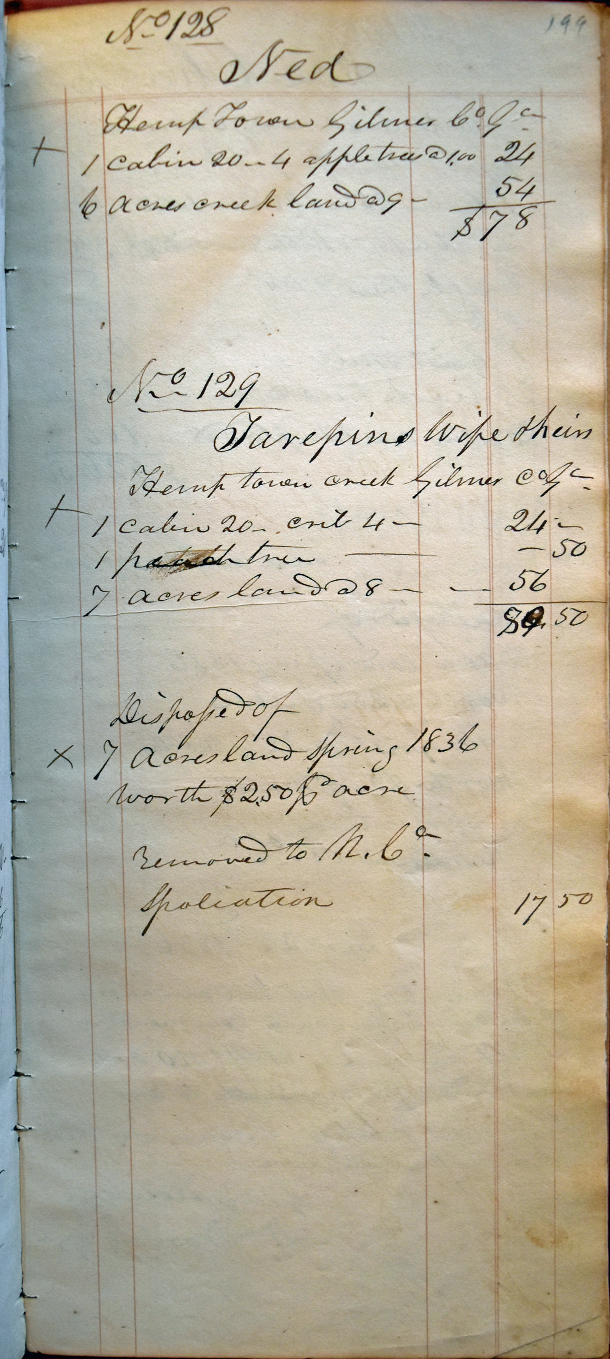 199
No 128
Ned
Hemp Town Gilmer Co. Ga
+ 1 cabin 20 - 4 apple trees @ 1,00 24
6 acres creek land @ 9 - 54
$78
No 129
Tarepins Wife & heirs
Hemp town creek Gilmer co Ga
+ 1 cabin 20 - crib 4 - 24 -
1 tree - 50
7 acres land @ 8 - - 56
50
Disposed of
x 7 Acres land spring 1836
worth $2.50 pr acre
removed to N. Ca
Spoliation 17 50